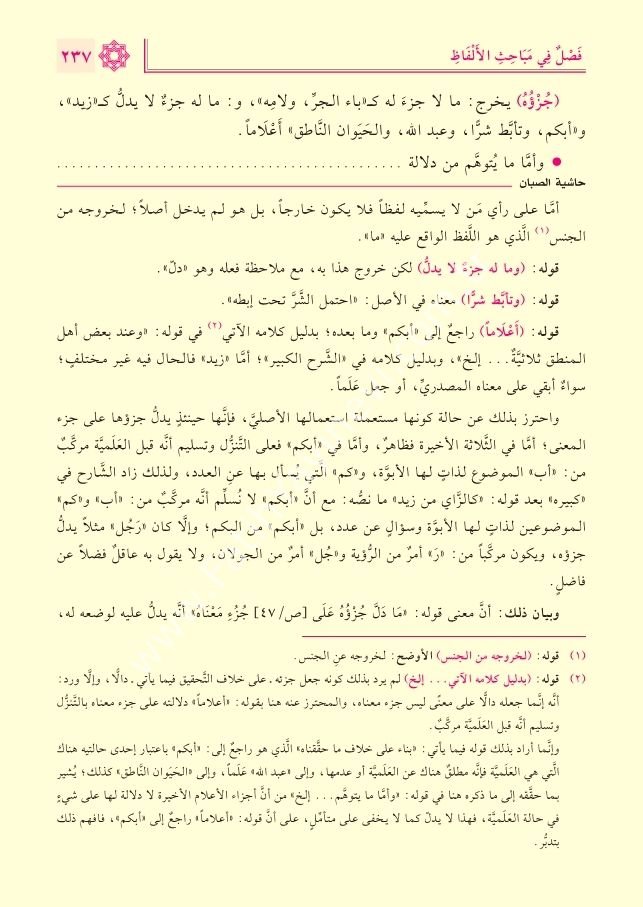 فَصْلٌ فِي مَبَاحِثِ الأَلْفَاظِ
٢٣٧
(جُزْؤُهُ) يخرج: ما لا جزءَ له كـ«باء الجرِّ، ولامِه»، و: ما له جزءٌ لا يدلُّ كـ«زيد»،
و«أبكم، وتأبَّط شرًّا، وعبد الله، والحَيَوان النَّاطق» أَعْلَاماً.
● وأمَّا ما يُتوهَّم من دلالة . . . . . . . . . . . . . . . . . . . . . . . . . . . . . . . . . . . . . . . . . . . .
حاشية الصبان
أمَّا على رأي مَن لا يسمِّيه لفظاً فلا يكون خارجاً، بل هو لم يدخل أصلاً؛ لخروجه من
الجنس(١) الَّذي هو اللَّفظ الواقع عليه «ما».
قوله: (وما له جزءٌ لا يدلُّ) لكن خروج هذا به، مع ملاحظة فعله وهو «دلّ».
قوله: (وتأبَّط شرًّا) معناه في الأصل: «احتمل الشَّرَّ تحت إبطه».
قوله: (أَعْلَاماً) راجعٌ إلى «أبكم» وما بعده؛ بدليل كلامه الآتي(٢) في قوله: «وعند بعض أهل
المنطق ثلاثيَّةٌ... إلخ»، وبدليل كلامه في «الشَّرح الكبير»؛ أمَّا «زيد» فالحال فيه غير مختلفٍ؛
سواءٌ أبقي على معناه المصدريِّ، أو جعل عَلَماً.
واحترز بذلك عن حالة كونها مستعملة استعمالها الأصليَّ، فإنَّها حينئذٍ يدلُّ جزؤها على جزء
المعنى؛ أمَّا في الثَّلاثة الأخيرة فظاهرٌ، وأمَّا في «أبكم» فعلى التَّنزُّل وتسليم أنَّه قبل العَلَميَّة مركَّبٌ
من: «أب» الموضوع لذاتٍ لها الأبوَّة، و«كم» الَّتي يُسأل بها عن العدد، ولذلك زاد الشَّارح في
«كبيره» بعد قوله: «كالزَّاي من زيد» ما نصُّه: مع أنَّ «أبكم» لا نُسلِّم أنَّه مركَّبٌ من: «أب» و«كم»
الموضوعين لذاتٍ لها الأبوَّة وسؤالٍ عن عدد، بل «أبكم» من البكم؛ وإلَّا كان «رَجُل» مثلاً يدلُّ
جزؤه، ويكون مركَّباً من: «رَ» أمرٌ من الرُّؤية و«جُل» أمرٌ من الجولان، ولا يقول به عاقلٌ فضلاً عن
فاضلٍ.
وبيان ذلك: أنَّ معنى قوله: «مَا دَلَّ جُزْؤُهُ عَلَى [ص/٤٧] جُزُءِ مَعْنَاهُ» أنَّه يدلُّ عليه لوضعه له،
(١) قوله: (لخروجه من الجنس) الأوضح: لخروجه عنِ الجنس.
(٢) قوله: (بدليل كلامه الآتي... إلخ) لم يرد بذلك كونه جعل جزئه ـ على خلاف التَّحقيق فيما يأتي ـ دالًّا، وإلَّا ورد:
أنَّه إنَّما جعله دالًّا على معنًى ليس جزء معناه، والمحترز عنه هنا بقوله: «أعلاماً» دلالته على جزء معناه بالتَّنزُّل
وتسليم أنَّه قبل العَلَميَّة مركَّبٌ.
وإنَّما أراد بذلك قوله فيما يأتي: «بناء على خلاف ما حقَّقناه» الَّذي هو راجعٌ إلى: «أبكم» باعتبار إحدى حالتيه هناك
الَّتي هي العَلَميَّة فإنَّه مطلقٌ هناك عن العَلَميَّة أو عدمها، وإلى «عبد الله» عَلَماً، وإلى «الحَيَوان النَّاطق» كذلك؛ يُشير
بما حقَّقه إلى ما ذكره هنا في قوله: «وأمَّا ما يتوهَّم... إلخ» من أنَّ أجزاء الأعلام الأخيرة لا دلالة لها على شيءٍ
في حالة العَلَميَّة، فهذا لا يدلّ كما لا يخفى على متأمِّلٍ، على أنَّ قوله: «أعلاماً» راجعٌ إلى «أبكم»، فافهم ذلك
بتدبُّر.